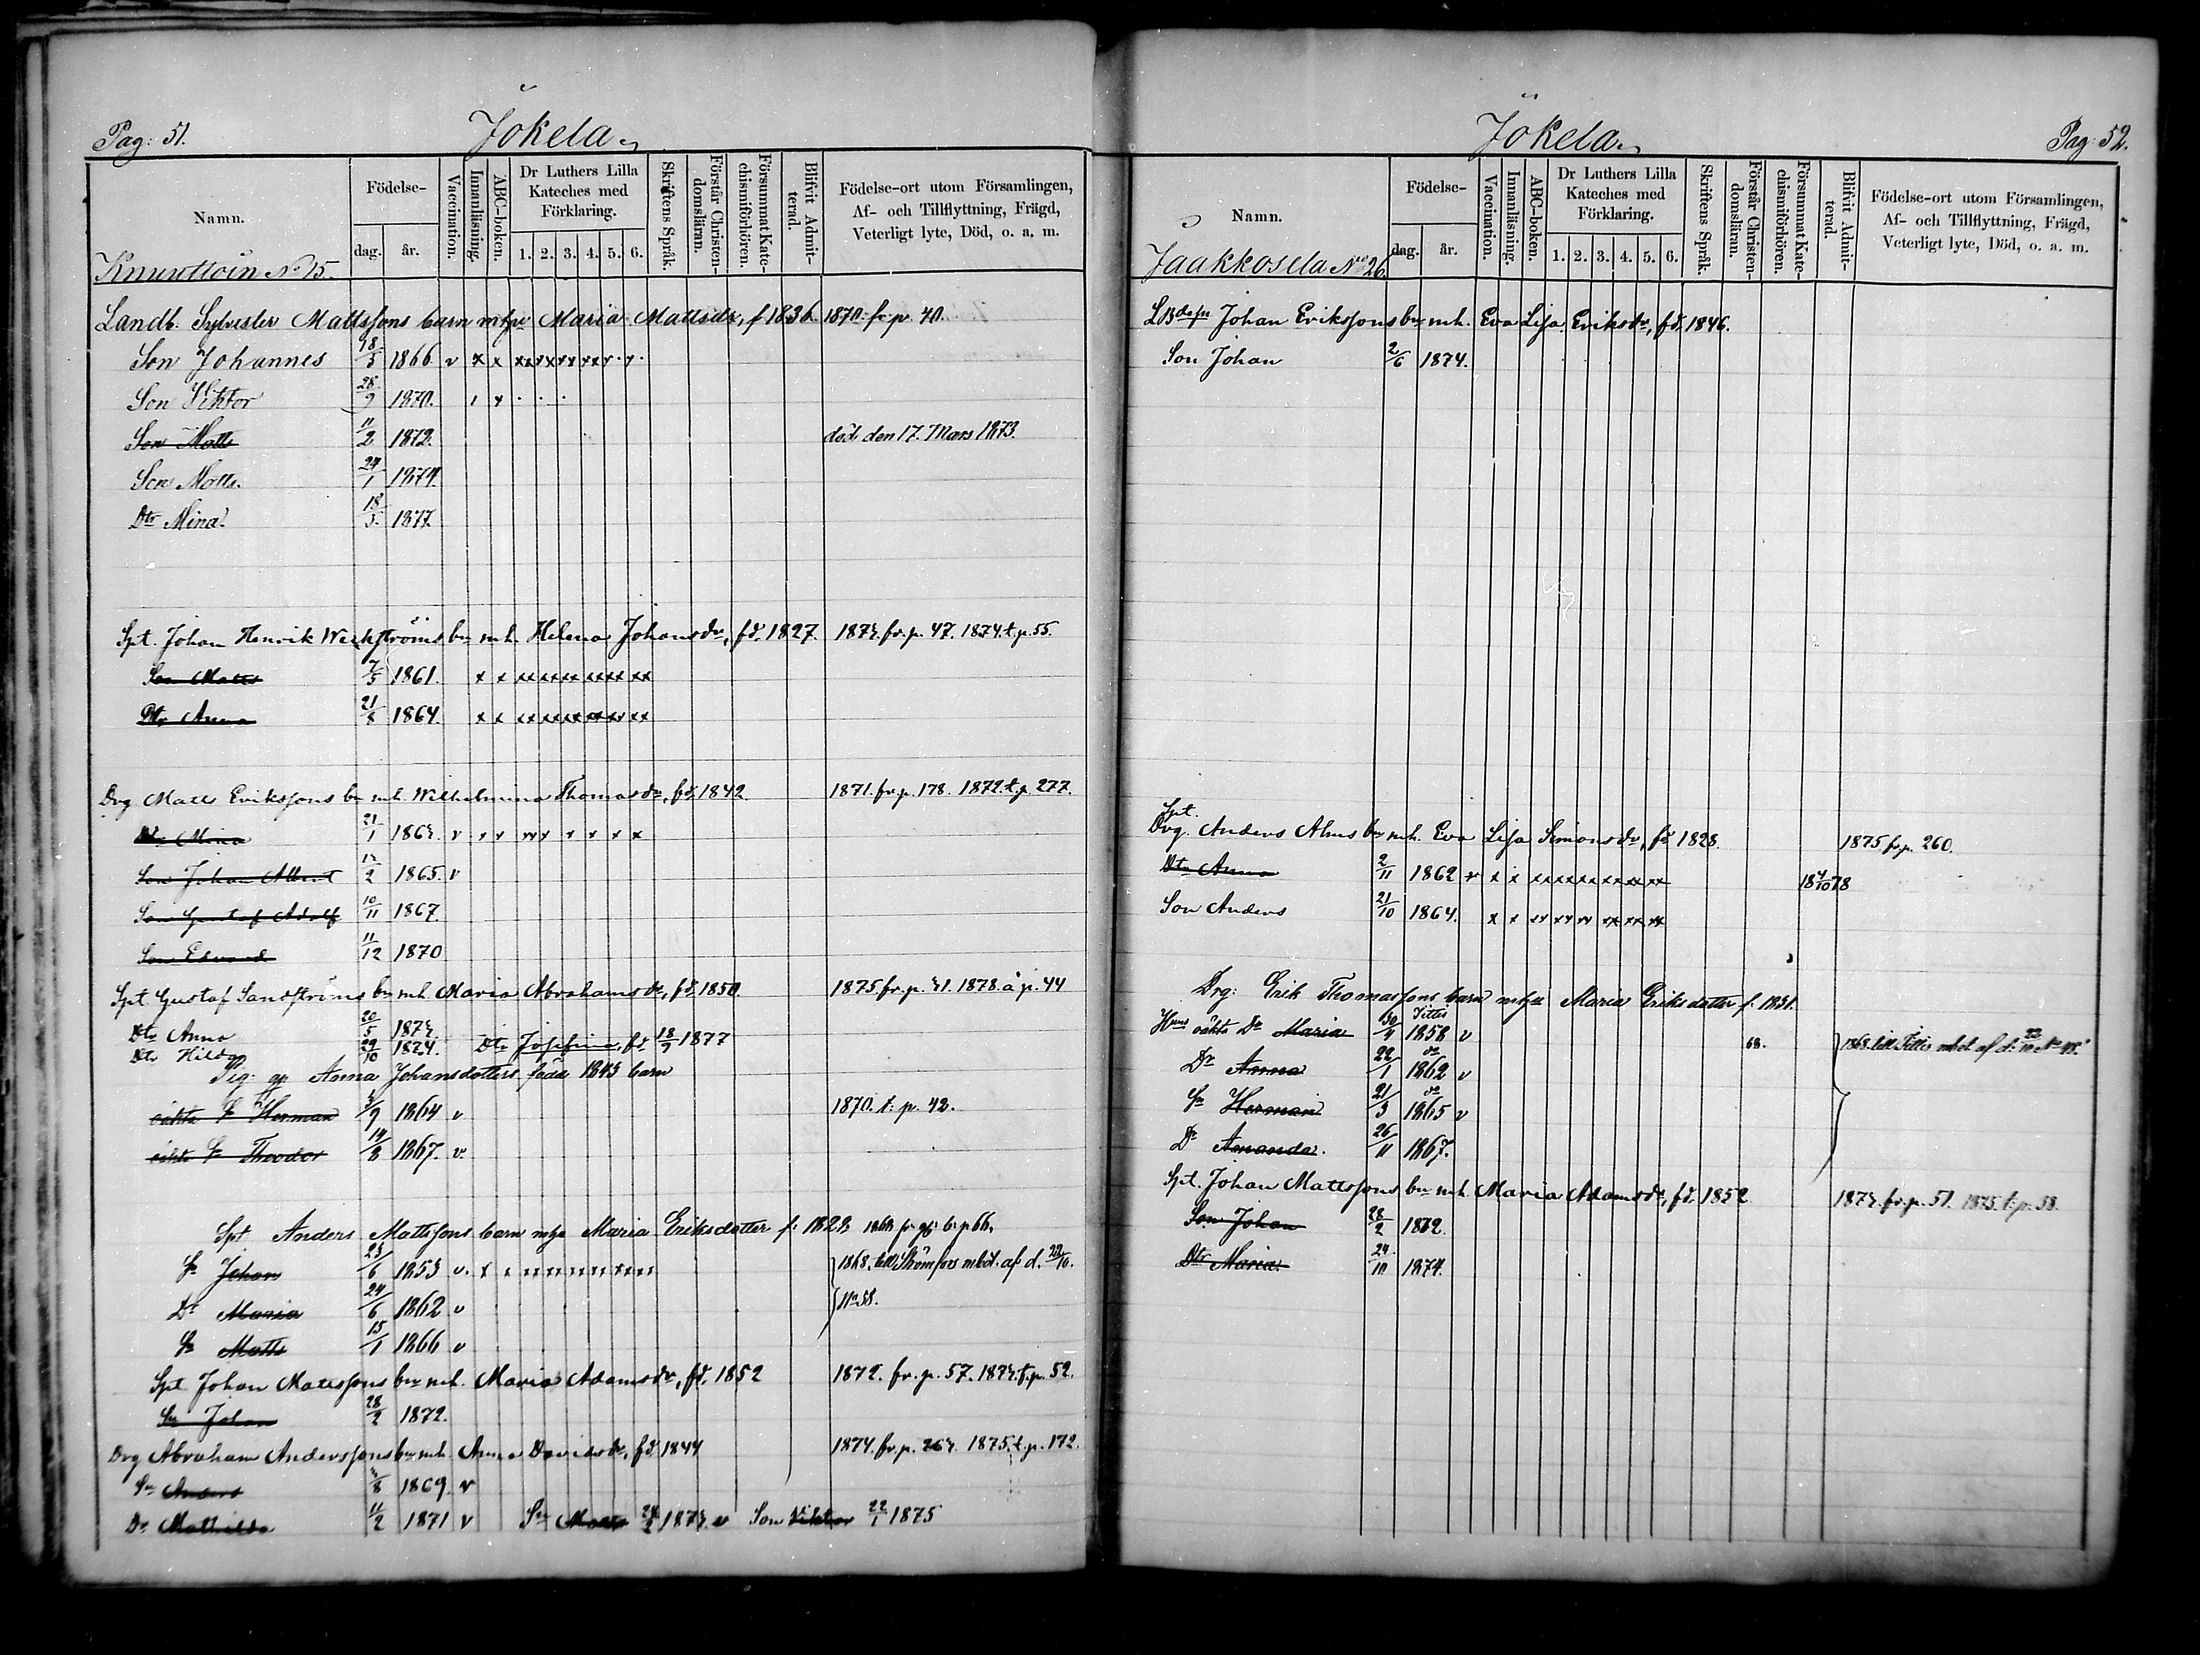 Pag: 51.
Jokela
Namn.
Födelse-
dag.
år.
Vaccination.
Innanläsning.
ABC-boken.
Dr Luthers Lilla Kateches med Förklaring.
1. 2. 3. 4. 5. 6.
Skriftens Språk.
Förstår Christendomsläran.
Försummat Katechismiförhören.
Blifvit Admitterad.
Födelse-ort utom Församlingen,
Af- och Tillflyttning, Frägd,
Veterligt lyte, Död, o. a. m.
No 15.
Landb. Sylvester Mattssons barn m hu Maria Mattsdr, f 1836. 1870. fr. p. 40.
Son Johannes 18/5 1866 v x x
Son Viktor 28/9 1870.
Son Matts 11/2 1872. död den 17. Mars 1873.
Son Matts. 24/1 1874.
Dtr Mina. 18/3 1877
Spt. Johan Henrik Weckströms bn m.h. Helena Johansdr, fd. 1827. 1873. fr. p. 47. 1874. t. p. 55.
Son Matts 7/5 1861. x x xx xx xx xx xx xx
Dtr Anna 21/ 1864. x x xx xx xx xx xx xx
Drg Matts Erikssons bn m.h. Wilhelmina Thomasdr, fd. 1842 1871. fr. p. 178. 1872. t. p. 277.
Dtr Mina 21/1 1863. v
Son Johan Albert /2 1865. v
Son Gustaf Adolf 10/11 1867.
Son Edvard 11/12 1870
Spt. Gustaf Sandströms bn m.h. Maria Abrahamsdr, fd. 1850. 1875 fr. p. 31. 1878. å p. 44
Dtr Anna 20/5 1873.
Dtr Hilda 29/10 1874. Dtr Josefina, fd. 18/9 1877
Pig: Anna Johansdotters född 1843 barn
oäkta Sn Herman /9 1864 v 1870. t. p. 42.
oäkta Sn Theodor 14/8 1867. v.
Spt Anders Mattssons barn m hu Maria Eriksdotter f. 1828 1868 fr.
Sn Johan 23/6 1853 v. 1868. till Strömfors m bet. af d. 22/10.
Dr Maria 24/6 1862 v No 58.
Sn Matts 15/1 1866 v
Spt Johan Matssons bn m.h. Maria Adamsdr, fd. 1852 1872. fr. p. 57. 1873. t. p. 52.
Sn Johan 28/2 1872.
Drg Abraham Anderssons bn m.h. Anna Davidsdr, fd. 1844 1874. fr. p. 263. 1875. t. p. 172.
Sn Anders /8 1869. v
Dr Mathilda 11/2 1871 v Sn Matts 24/2 1873. v Son Viktor 22/1 1875
Jokela
Pag: 52.
Namn.
Födelse-
dag.
år.
Vaccination.
Innanläsning.
ABC-boken.
Dr Luthers Lilla Kateches med Förklaring.
1. 2. 3. 4. 5. 6.
Skriftens Språk.
Förstår Christendomsläran.
Försummat Katechismiförhören.
Blifvit Admitterad.
Födelse-ort utom Församlingen,
Af- och Tillflyttning, Frägd,
Veterligt lyte, Död, o. a. m.
Jaakkosela No 26.
Johan Erikssons bn m.h. Eva Lisa Eriksdr, fd. 1846.
Son Johan 2/6 1874.
Spt.
Drg. Anders Alms bn m.h. Eva Lisa Simonsdr, fd 1828. 1875 fr. p. 260.
Dtr Anna 2/11 1862 v x x xx xx xx xx xx xx 18 4/10 78
Son Anders 21/10 1864. x x xx xx xx xx xx xx
Drg: Erik Thomassons barn m hu Maria Eriksdotter f. 1831.
Hans oäkta Dr Maria 30/4 1858 v 68. 1868. till Pyttis m bet. af d.
Dr Anna 22/1 1862 v
Sn Herman 21/3 1865 v
Dr Amanda. 26/11 1867.
Spt. Johan Mattssons bn m.h. Maria Adamsdr, fd. 1852 1873. fr. p. 51. 1875. t. p. 58.
Son Johan 28/2 1872.
Dtr Maria. 24/10 1874.